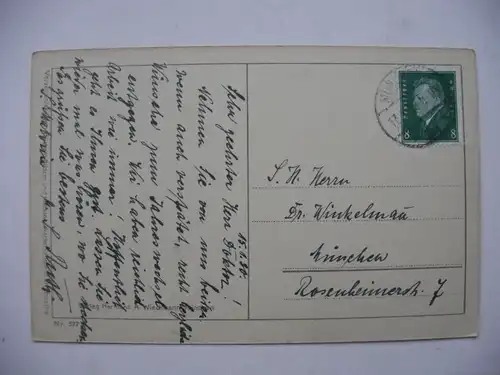 15.1.30.
Sehr geehrter Herr Doktor!
Nehmen Sie von mir heuer
wenn auch verspätet, recht herzliche
Wünsche zum Jahreswechsel
entgegen. Wir haben reichlich
Arbeit wie immer! Hoffentlich
geht es Ihnen gut, lassen Sie
wieder mal was hören, wo Sie stecken
Es grüßen Sie bestens
S. H. Herrn
Dr. Winkelmau
München
Rosenheimerstr. 7
8 8